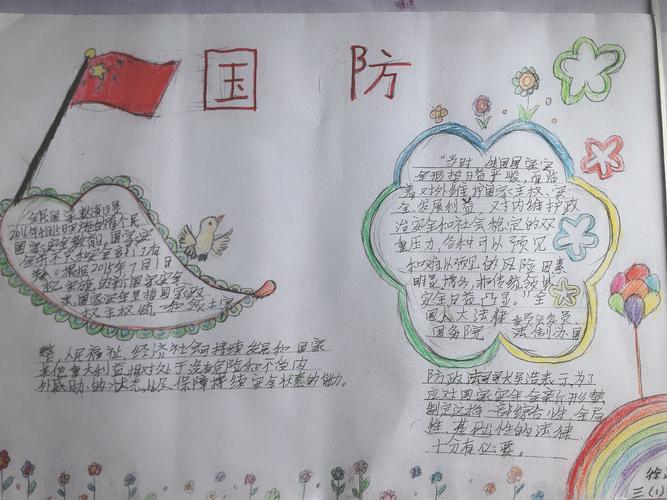 国 防
全民国家教育日是
2016年4月15日
国家安全教育,国家安
全
根据2015年7月1日
起实施的新国家安全
法国家安全是指国家政
权、主权、统一和领土完
整,人民福祉,经济社会可持续发展和国家
其他重大利益相对处于没有危险和不受内
外威胁的状态,以及保障持续安全状态的能力。
"当时,我国国家安
全形势日益严峻,面临
着对外维护国家主权、安
全、发展利益,对内维护政
治安全和社会稳定的双
重压力,各种可以预见
和难以预见的风险因素
明显增多,和传统领域
安全日益凸显。"全
国人大法律委员会委员
国务院 法制办国
防政法司司长吴浩表示,为了
应对国家安全全新行形势
制定这样一部综合性、全局
性、基础性的法律
十分有必要。
徐
三